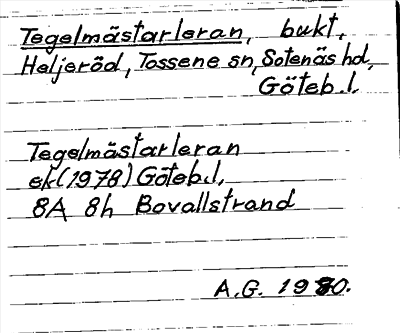 Tegelmästarleran, bukt,
Heljeröd, Tossene sn, Sotenäs hd,
Göteb.l.
Tegelmästarleran
ek(1978) Göteb.l,
8A 8h Bovallstrand
A.G. 1980.